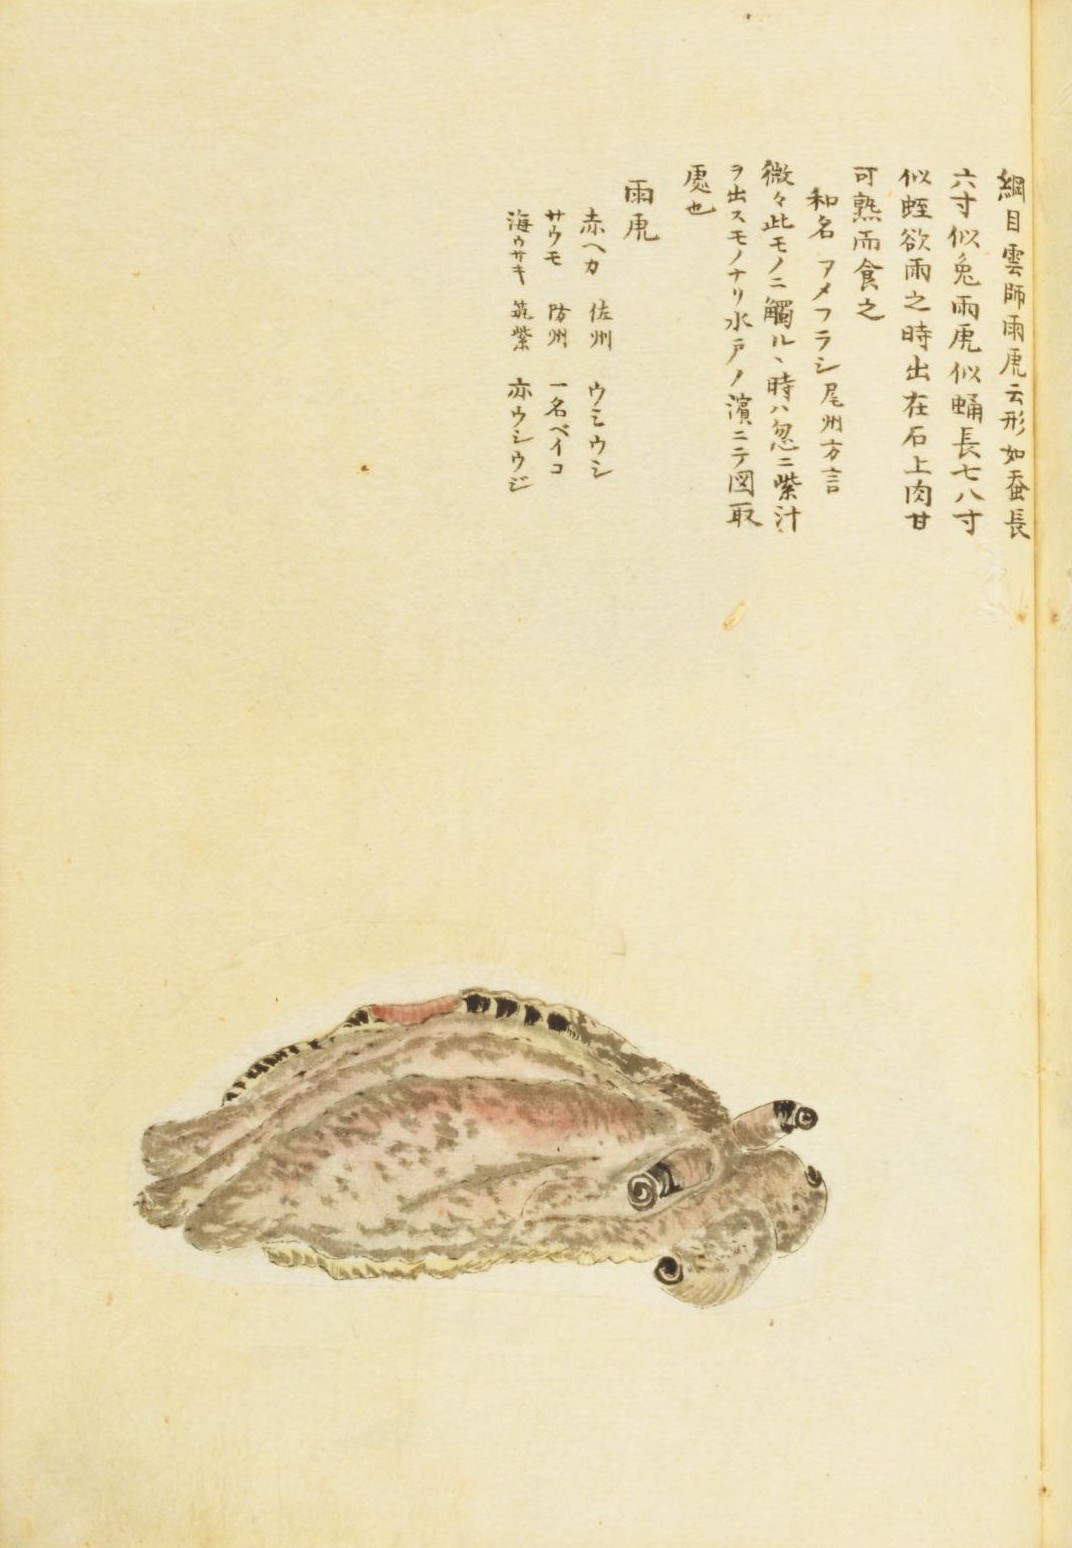 綱目雲師雨虎云形如蚕長
六寸似兔雨虎似蛹長七八寸
似蛭欲雨之時出在石上肉甘
可熟而食之
和名 アメフラシ 尾州方言
微々此モノニ觸ルヽ時ハ忽ニ紫汁
ヲ出スモノナリ水戸ノ濱ニテ図取
處也
雨虎
赤ヘカ 佐州 ウミウシ
サウモ 防州 一名ベイコ
海ウサキ 筑紫 亦ウシウジ